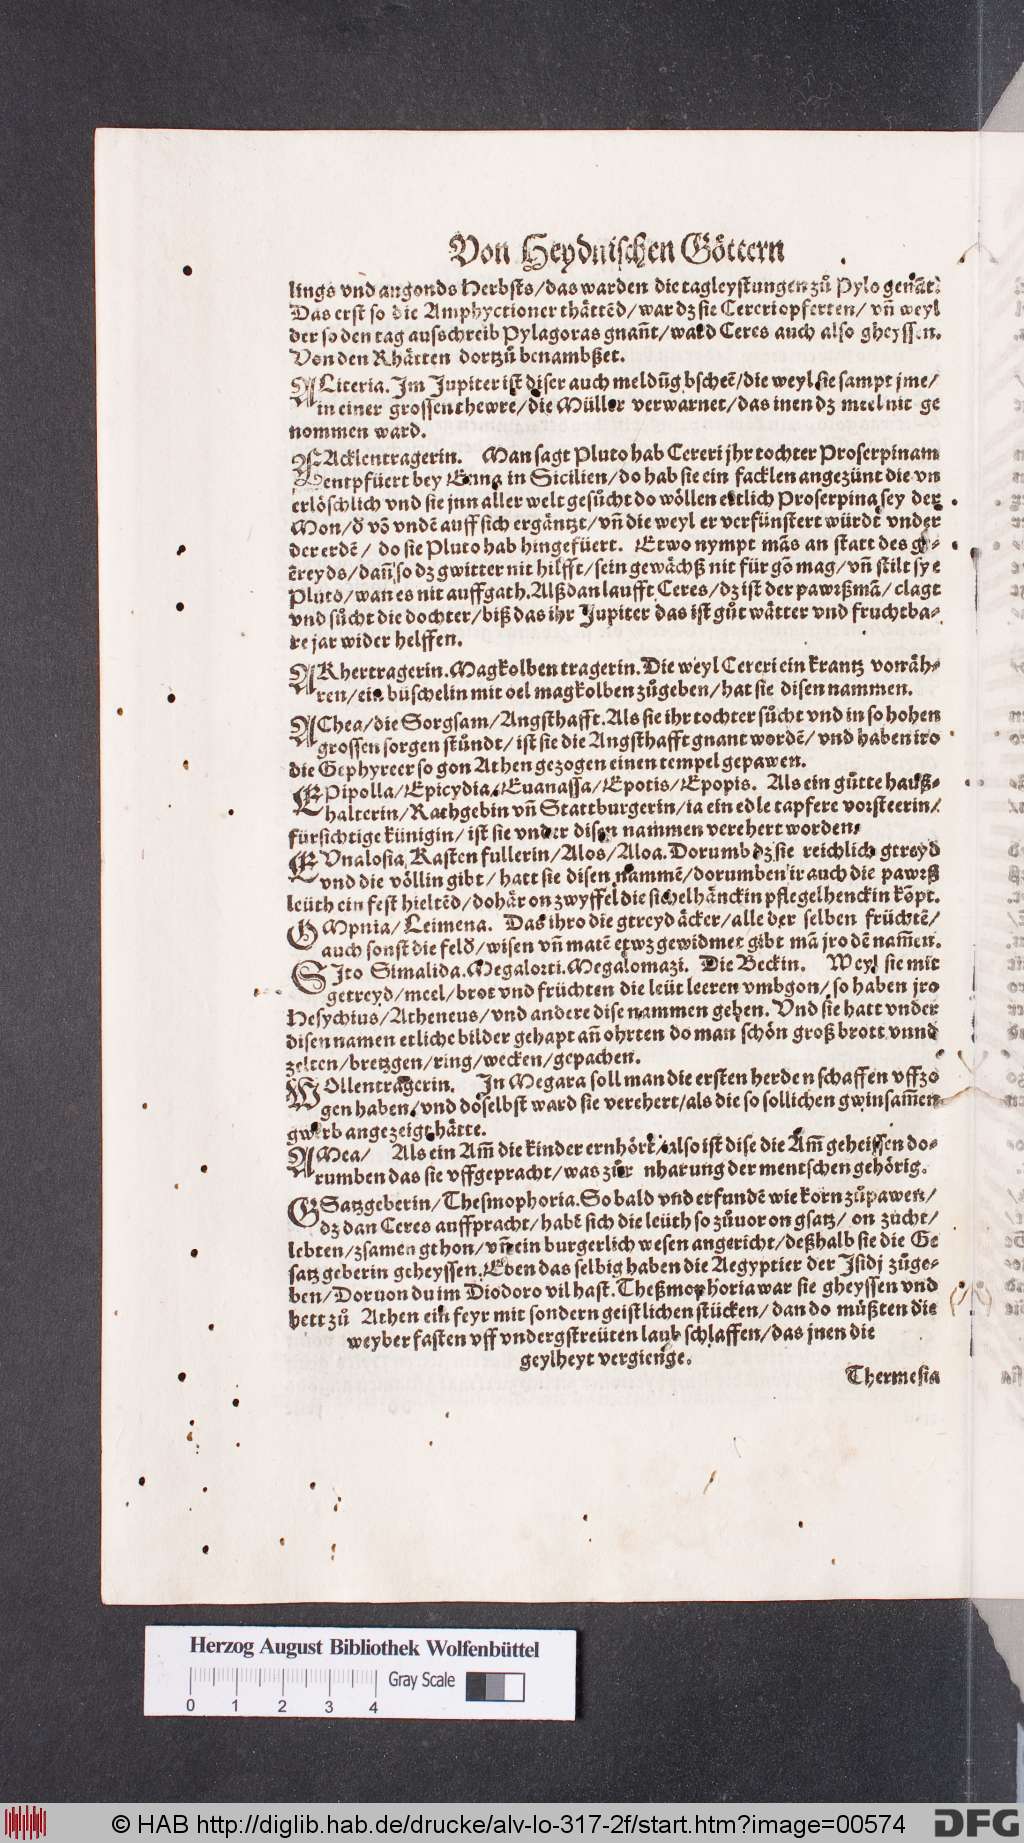 Von Heydnischen Göttern
lings vnd augonds Herbsts/das warden die tagleystungen zů Pylo genāt:
Das erst so die Amphyctioner thättēd/war dz sie Cereri opferten/ vn̄ weyl
der so den tag ausschreib Pylagoras gnañt/ward Ceres auch also gheyssen.
Von den Rhätten dortzů benambßet.
ALiteria. Im Jupiter ist diser auch meldūg bscheē/die weyl sie sampt jme/
in einer grossen thewre/die Müller verwarnet/das inen dz meel nit ge
nommen ward.
FAcklentragerin. Man sagt Pluto hab Cereri jhr tochter Proserpinam
entpfüert bey Enna in Sicilien/do hab sie ein facklen angezünt die vn
erlöschlich vnd sie jnn aller welt gesůcht do wöllen etlich Proserpina sey der
Mon/ď vō vndē auff sich ergäntzt/vn̄ die weyl er verfünstert würdt vnder
der erdē/ do sie Pluto hab hingefüert. Etwo nympt mās an statt des g-
ēreyds/dañ so dz gwitter nit hilfft/sein gewächß nit für gō mag/vn̄ stilt sye
Pluto/wan es nit auffgath. Alß dan laufft Ceres/dz ist der pawrßmā/ clagt
vnd sůcht die dochter/biß das ihr Jupiter das ist gůt wätter vnd fruchtba-
re jar wider helffen.
AEhertragerin. Magkolben tragerin. Die weyl Cereri ein krantz von äh-
ren/ein büschelin mit oel magkolben zůgeben/hat sie disen nammen.
AChea/die Sorgsam/Angsthafft. Als sie ihr tochter sůcht vnd in so hohen
grossen sorgen stůndt/ ist sie die Angsthafft gnant wordē/ vnd haben iro
die Gephyreer so gon Athen gezogen einen tempel gepawen.
EPipolla/Epicydia/Euanassa/Epotis/Epopis. Als ein gůtte hauß-
halterin/Rathgebin vn̄ Stattburgerin/ia ein edle tapfere vorsteerin/
fürsichtige künigin/ ist sie vnder disen nammen verehert worden.
EVnalosia Kasten fullerin/Alos/Aloa. Dorumb dz sie reichlich gtreyd
vnd die völlin gibt/ hatt sie disen nammē/dorumben ir auch die pawrß
leüth ein fest hieltēd/dohär on zwyffel die sichelhänckin pflegelhenckin kōpt.
OMpnia/ Leimena. Das ihro die gtreyd äcker/alle der selben früchtē/
auch sonst die feld/wisen vn̄ matē etwz gewidmet gibt mā jro dē nam̄en.
SIto Simalida. Megalorti. Megalomazi. Die Beckin. Weyl sie mit
getreyd/meel/brot vnd früchten die leüt leeren vmbgon/so haben jro
Hesychius/Atheneus/vnd andere dise nammen geben. Vnd sie hatt vnder
disen namen etliche bilder gehapt an̄ ohrten do man schön groß brott vnnd
zelten/bretzgen/ring/wecken/gepachen.
WOllentragerin. In Megara soll man die ersten herden schaffen vffzo
gen haben/vnd doselbst ward sie verehert/als die so sollichen gwinsam̄en
gwerb angezeigt hätte.
AMea/ Als ein Am̄ die kinder ernhört/also ist dise die Am̄ geheissen do-
rumben das sie vffgepracht/was zůr nharung der mentschen gehörig.
GSatzgeberin/Thesmophoria. So bald vnd erfundē wie korn zů pawen/
dz dan Ceres auffpracht/habē sich die leüth so zůuor on gsatz/ on zucht/
lebten/zsamen gthon/vn̄ ein burgerlich wesen angericht/deßhalb sie die Ge
satz geberin geheyssen. Eben das selbig haben die Aegyptier der Isidj zůge-
ben/ Doruon du im Diodoro vil hast. Theßmophoria war sie gheyssen vnd
hett zů Athen ein feyr mit sondern geistlichen stücken/ dan do můßten die
weyber fasten vff vndergstreüten laub schlaffen/das jnen die
geylheyt vergienge.
Thermesia
Herzog August Bibliothek Wolfenbüttel
Gray Scale
0 1 2 3 4
© HAB http://diglib.hab.de/drucke/alv-lo-317-2f/start.htm?image=00574
DFG